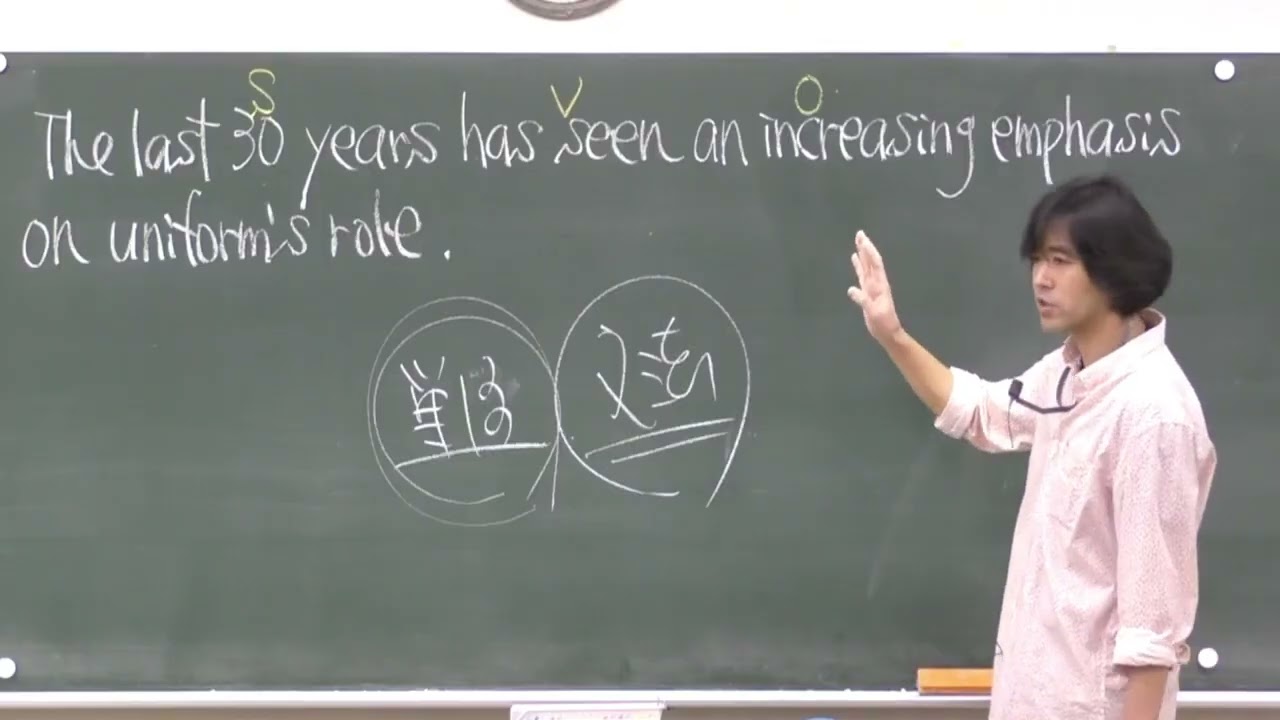 S V O
The last 30 years has seen an increasing emphasis
on uniform's role.